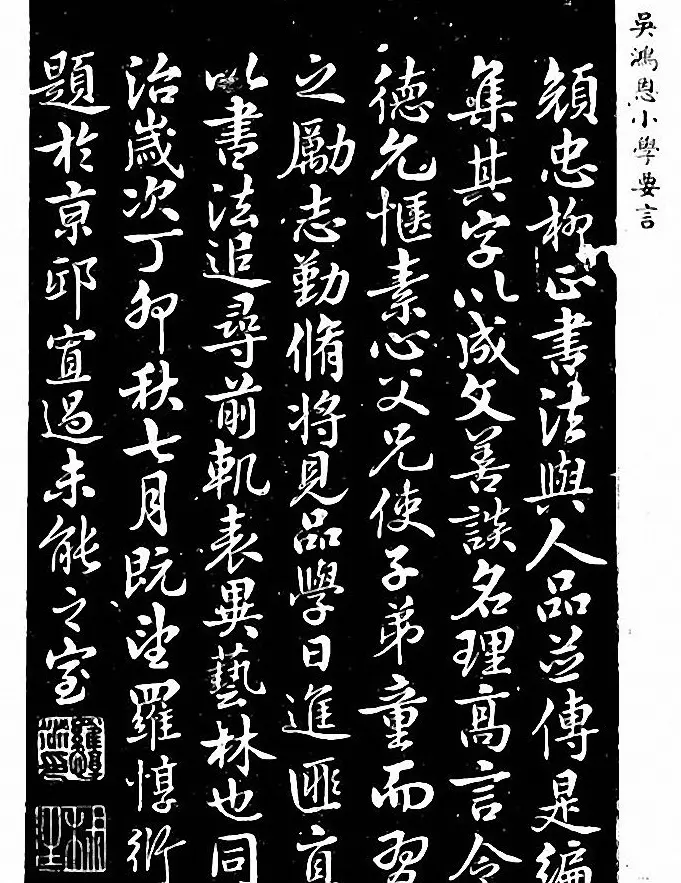 吳鴻恩小學要言
顏忠柳正書法與人品並傳是編
集其字以成文善談名理高言令
德允愜素心父兄使子弟童而習
之勵志勤脩將見品學日進匪直
以書法追尋前軌表異藝林也同
治歲次丁卯秋七月既望羅惇衍
題於京邸寡過未能之室
羅惇衍印